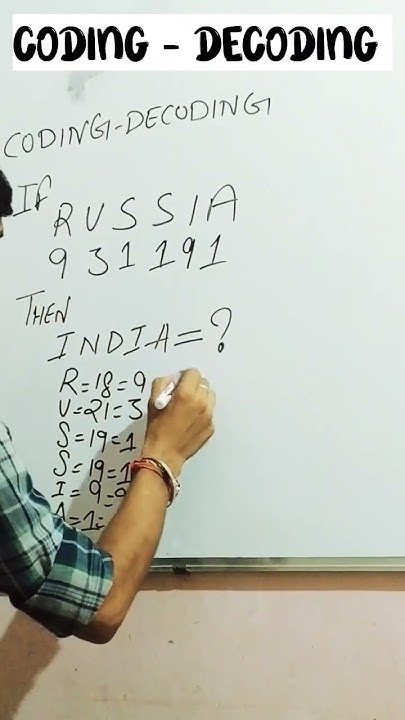 CODING - DECODING
CODING-DECODING
If
RUSSIA
931191
THEN
INDIA=?
R=18=9
U=21=3
S=19=1
S=19=1
I=9=9
A=1=